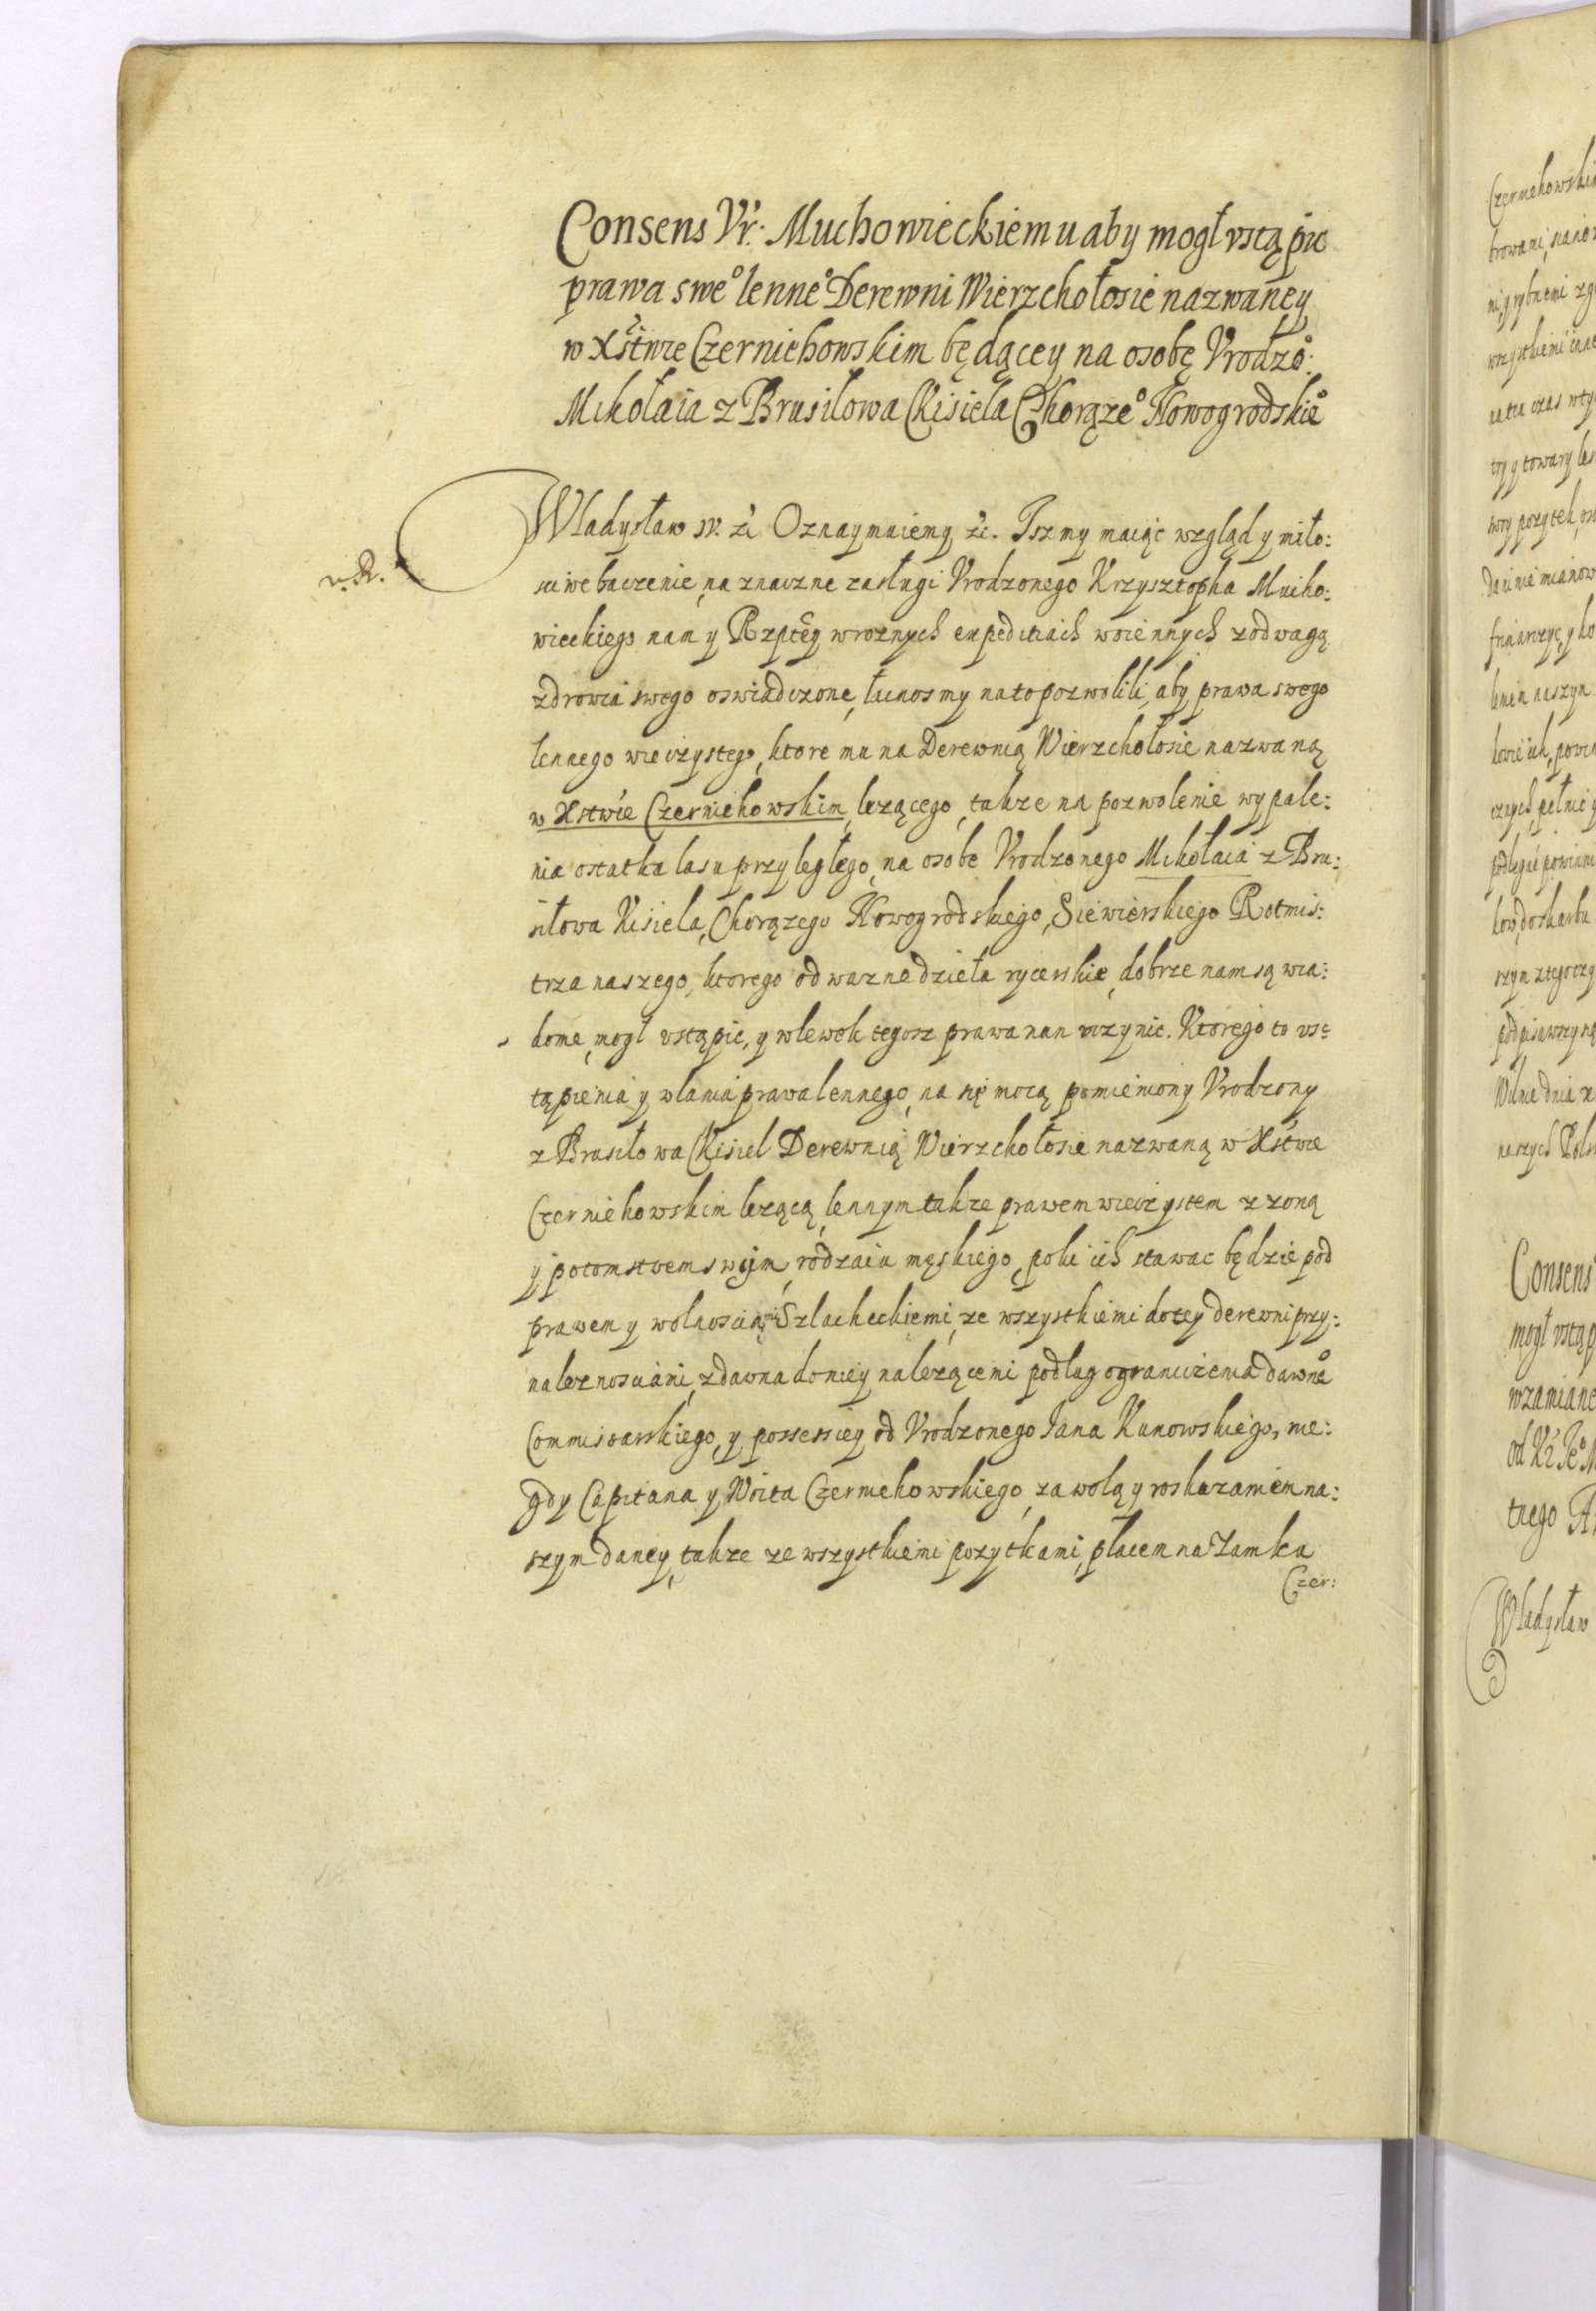 Consens Vr: Muchowieckiemu aby mogł vstąpic
prawa sweº lenneº Derewni Wierzchołosie nazwaney
w Xstwie Czerniehowskim będącey na osobę Vrodzº:
Mikołaia z Brusiłowa Kisiela Chorążeº Nowogrodskieº
Władysław IV. &c Oznaymuiemy &c. Iszmy maiąc wzgląd y miło:
v. R.
sciwe baczenie, na znaczne zasługi Vrodzonego Krzysztopha Mucho:
wieckiego nam y Rzptey w roznych expeditiach woiennych z odwagą
zdrowia swego oswiadczone, łacnosmy na to pozwolili, aby prawa swego
lennego wieczystego, ktore mu na Derewnią Wierzchołosie nazwaną
w Xstwie Czerniehowskim lezącego, takze na pozwolenie wypale:
nia ostatka lasu przyległego, na osobe Vrodzonego Mikołaia z Bru:
siłowa Kisiela, Chorązego Nowogrodskiego, Siewierskiego Rotmis:
trza naszego, ktorego odwazne dzieła rycerskie, dobrze nam są wia:
dome, mogł vstąpic, y wlewek tegosz prawa nan vczynic. Ktorego to vs:
tąpienia y wlania prawa lennego, na się mocą pomieniony Vrodzony
z Brusiłowa Kisiel Derewnią Wierzchołosie nazwaną w Xstwie
Czerniehowskim lezącą, lennym takze prawem wieczystem z zoną
y potomstwem swym, rodzaiu męskiego, poki ich stawac będzie pod
prawem y wolnosciami Szlacheckiemi, ze wszystkiemi do tey derewni przy:
naleznosciami, zdawna do niey nalezącemi podług ograniczenia dawneº
Commisarskiego, y possessiey od Vrodzonego Iana Kunowskiego, nie:
gdy Capitana y Woita Czerniehowskiego, za wolą y roskazaniem na:
szym daney, takze ze wszystkiemi pozytkami, placem na Zamku
Czer:
Consens
mogł vstąp
w zamiane
tnego
Władysław